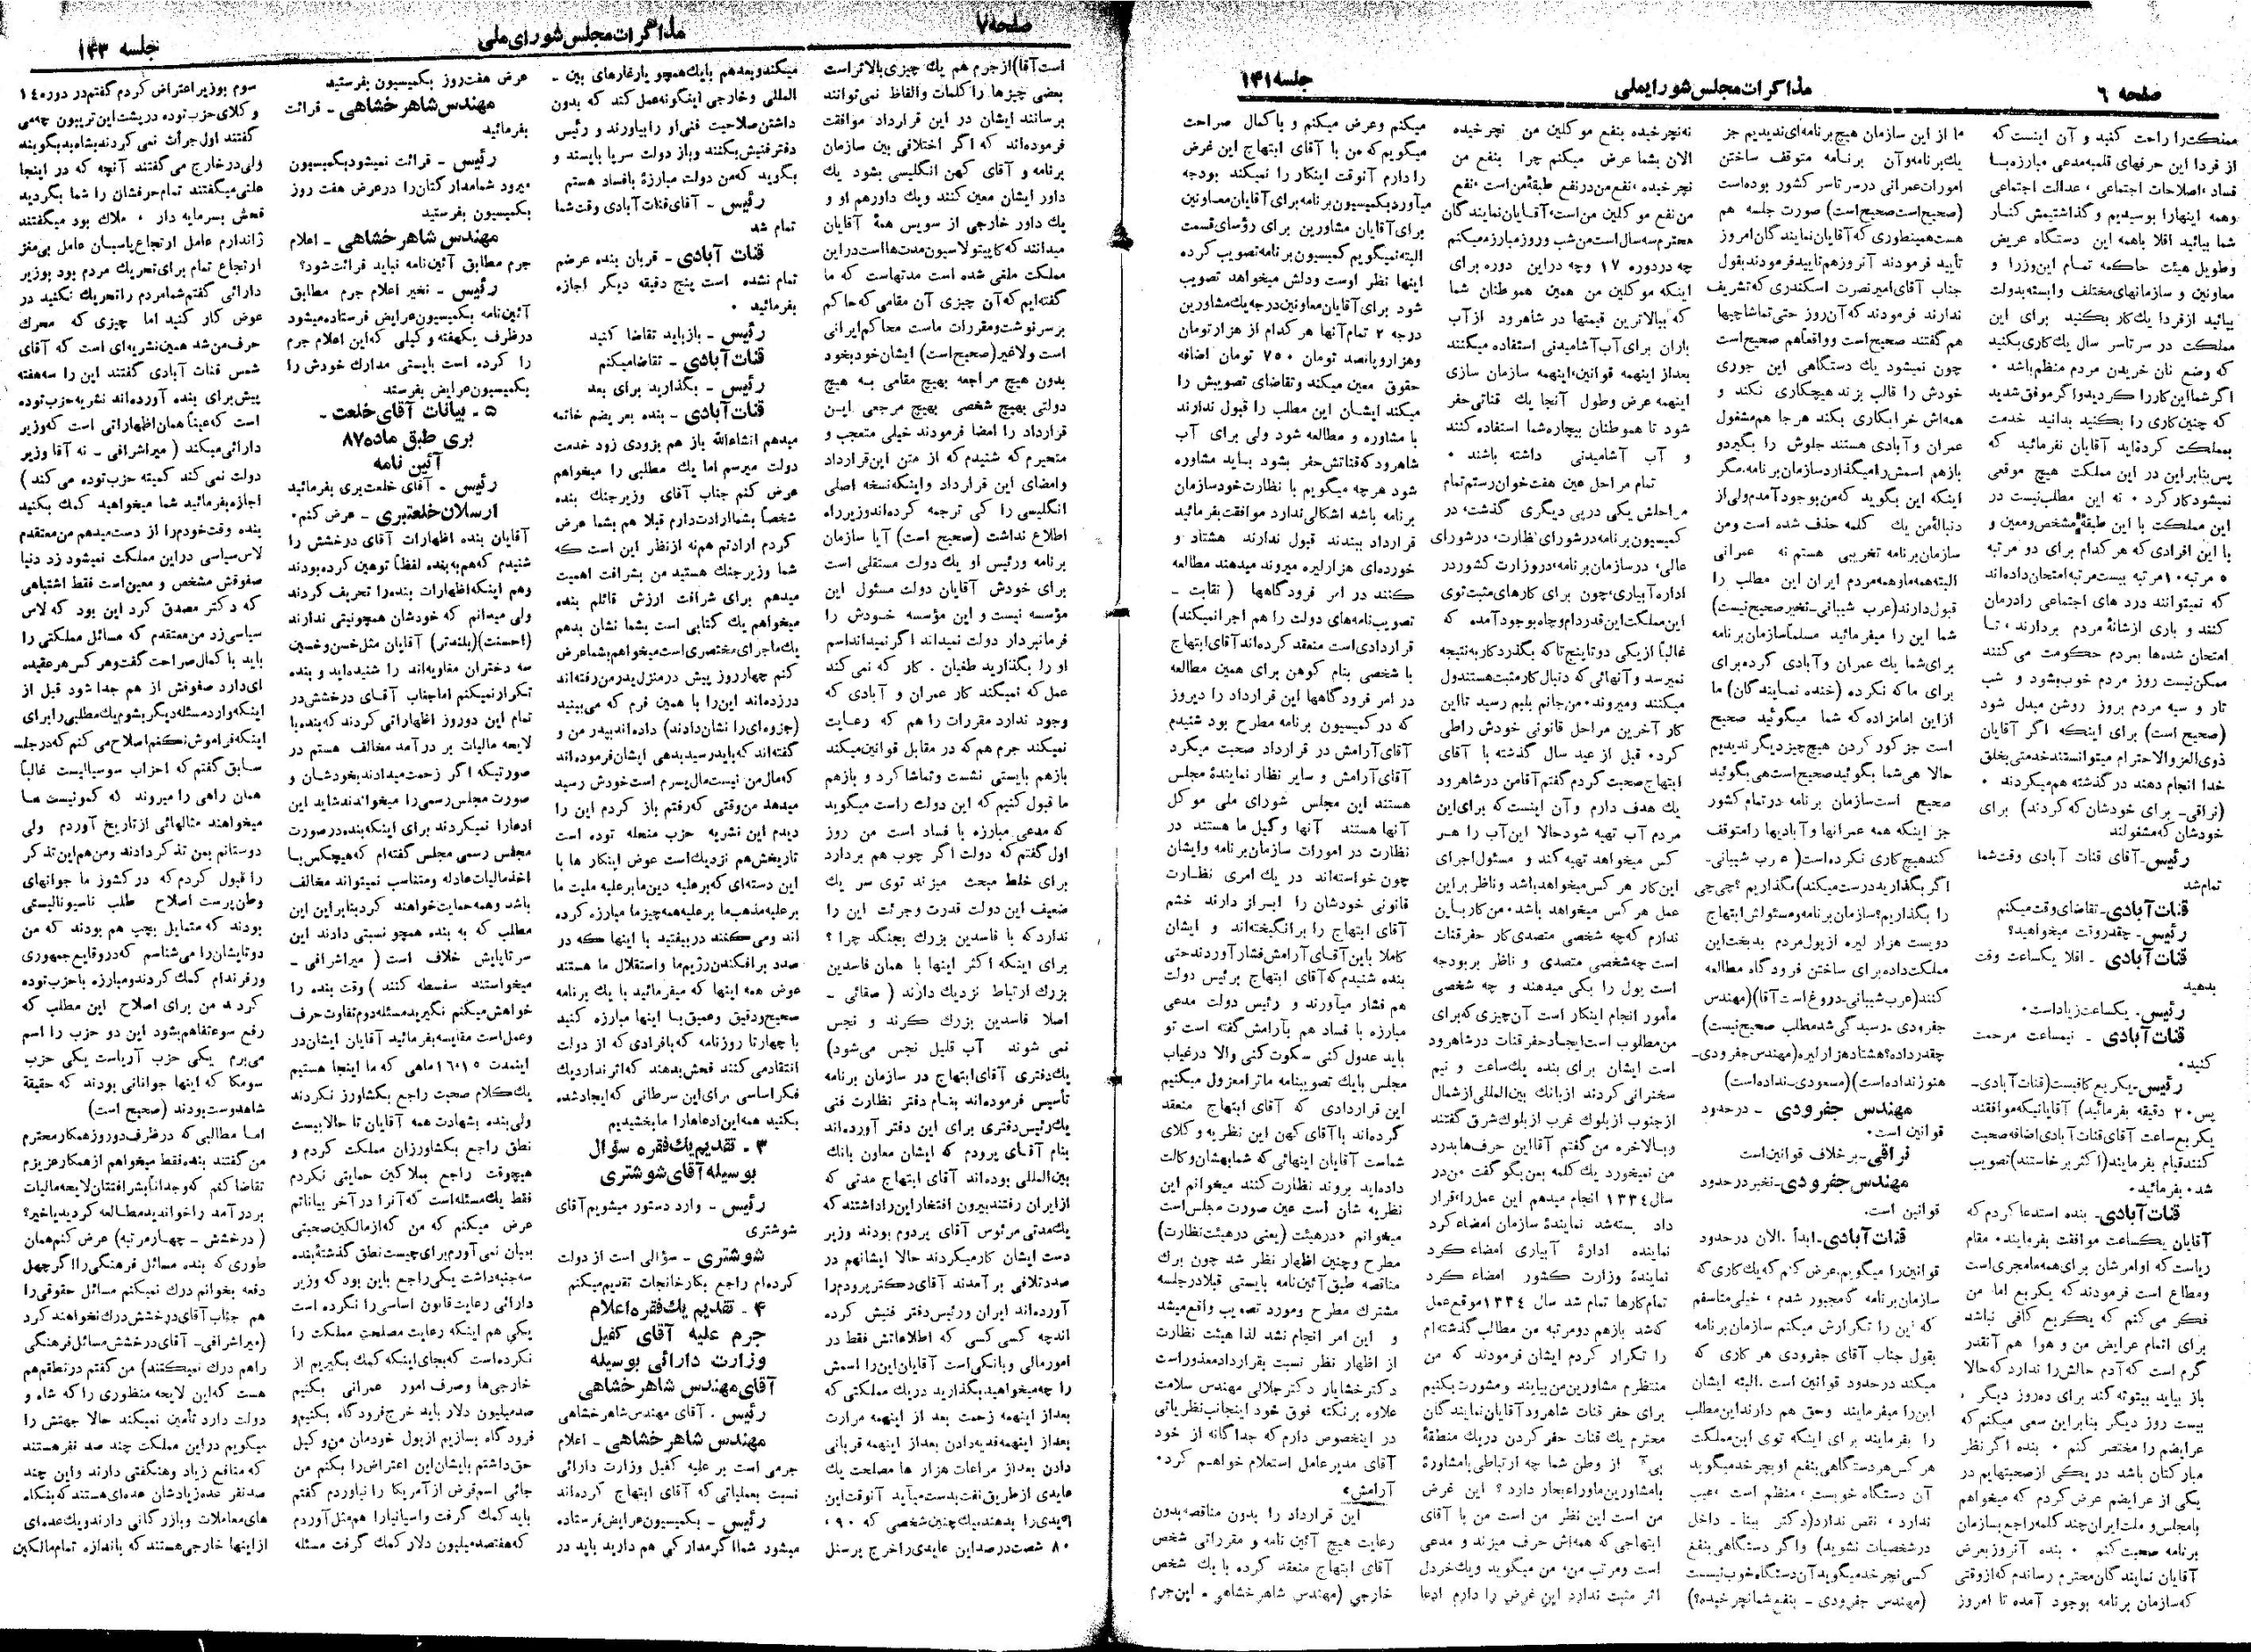 صفحه ۶
مذاکرات مجلس شورایملی
جلسه ۱۴۱
مملکت را راحت کنید و آن اینست که
از فردا این حرفهای قلمبه مدعی مبارزه با
فساد، اصلاحات اجتماعی، عدالت اجتماعی
وهمه اینهارا بوسیدیم و گذاشتیمش کنار
شما بیائید اقلا باهمه این دستگاه عریض
وطویل هیئت حاکمه تمام این وزرا و
معاونین و سازمانهای مختلف وابسته بدولت
بیائید ازفردا یك کار بکنید برای این
مملکت در سرتاسر سال یك کاری بکنید
که وضع نان خریدن مردم منظم باشد .
اگر شما این کار را کردید و اگر موفق شدید
که چنین کاری را بکنید بدانید خدمت
بمملکت کرده اید آقایان نفرمائید که
پس بنابراین در این مملکت هیچ موقعی
نمیشود کار کرد . نه این مطلب نیست در
این مملکت با این طبقهٔ مشخص ومعین و
با این افرادی که هر کدام برای دو مرتبه
۵ مرتبه ۱۰ مرتبه بیست مرتبه امتحان داده اند
که نمیتوانند درد های اجتماعی را درمان
کنند و باری ازشانهٔ مردم بردارند، تا
امتحان شده ها بمردم حکومت می کنند
ممکن نیست روز مردم خوب بشود و شب
تار و سیه مردم بروز روشن مبدل شود
(صحیح است) برای اینکه اگر آقایان
ذوی العز والاحترام میتوانستند خدمتی بخلق
خدا انجام دهند در گذشته هم میکردند .
(نراقی- برای خودشان که کردند) برای
خودشان که مشغولند
رئیس- آقای قنات آبادی وقت شما
تمام شد
قنات آبادی- تقاضای وقت میکنم
رئیس- چقدر وقت میخواهید؟
قنات آبادی - اقلا یکساعت وقت
بدهید
رئیس- یکساعت زیاد است.
قنات آبادی - نیمساعت مرحمت
کنید.
رئیس- یکربع کافیست (قنات آبادی-
پس ۲۰ دقیقه بفرمائید) آقایانیکه موافقند
یکربع ساعت آقای قنات آبادی اضافه صحبت
کنند قیام بفرمایند (اکثر برخاستند) تصویب
شد. بفرمائید.
قنات آبادی- بنده استدعا کردم که
آقایان یکساعت موافقت بفرمایند. مقام
ریاست که اوامرشان برای همه ما مجری است
ومطاع است فرمودند که یکربع اما من
فکر می کنم که یکربع کافی نباشد
برای اتمام عرایض من و هوا هم آنقدر
گرم است که آدم حالش را ندارد که حالا
باز بیاید بیتوته کند برای ده روز دیگر ،
بیست روز دیگر بنابراین سعی میکنم که
عرایضم را مختصر کنم . بنده اگر نظر
مبارکتان باشد در یکی از صحبتهایم در
یکی از عرایضم عرض کردم که میخواهم
بامجلس و ملت ایران چند کلمه راجع بسازمان
برنامه صحبت کنم . بنده آنروز بعرض
آقایان نمایندگان محترم رساندم که از وقتی
که سازمان برنامه بوجود آمده تا امروز
ما از این سازمان هیچ برنامه ای ندیدیم جز
یك برنامه و آن برنامه متوقف ساختن
امورات عمرانی در سرتاسر کشور بوده است
(صحیح است صحیح است) صورت جلسه هم
هست همینطوری که آقایان نمایندگان امروز
تأیید فرمودند آنروز هم تأیید فرمودند بقول
جناب آقای امیر نصرت اسکندری که تشریف
ندارند فرمودند که آن روز حتی تماشاچیها
هم گفتند صحیح است و واقعاً هم صحیح است
چون نمیشود یك دستگاهی این جوری
خودش را قالب بزند هیچکاری نکند و
همه اش خرابکاری بکند هر جا هم مشغول
عمران و آبادی هستند جلوش را بگیرد و
بازهم اسمش را میگذارد سازمان برنامه، مگر
اینکه این بگوید که من بوجود آمدم ولی از
دنبالهٔ من یك کلمه حذف شده است ومن
سازمان برنامه تخریبی هستم نه عمرانی
البته همه ما و همه مردم ایران این مطلب را
قبول دارند (عرب شیبانی- نخیر صحیح نیست)
شما این را میفرمائید مسلماً سازمان برنامه
برای شما یك عمران و آبادی کرده برای
برای ما که نکرده (خنده نمایندگان) ما
ازاین امامزاده که شما میگوئید صحیح
است جز کور کردن هیچ چیز دیگر ندیدیم
حالا هی شما بگوئید صحیح است هی بگوئید
صحیح است سازمان برنامه در تمام کشور
جز اینکه همه عمرانها و آبادیها را متوقف
کند هیچ کاری نکرده است (عرب شیبانی-
اگر بگذارید درست میکند) بگذاریم ؟ چی چی
را بگذاریم؟ سازمان برنامه و مسئولش ابتهاج
دویست هزار لیره از پول مردم بدبخت این
مملکت داده برای ساختن فرودگاه مطالعه
کنند (عرب شیبانی- دروغ است آقا) (مهندس
جفرودی - رسیدگی شد مطلب صحیح نیست)
چقدر داده؟ هشتاد هزار لیره (مهندس جفرودی-
هنوز نداده است) (مسعودی- نداده است)
مهندس جفرودی - در حدود
قوانین است.
نراقی- برخلاف قوانین است
مهندس جفرودی- نخیر در حدود
قوانین است.
قنات آبادی- ابداً . الان در حدود
قوانین را میگویم. عرض کنم که یك کاری که
سازمان برنامه که مجبور شدم ، خیلی متاسفم
که این را تکرارش میکنم سازمان برنامه
بقول جناب آقای جفرودی هر کاری که
میکند در حدود قوانین است . البته ایشان
این را میفرمایند وحق هم دارند این مطلب
را بفرمایند برای اینکه توی این مملکت
هر کس هر دستگاهی بنفع او بچرخد میگوید
آن دستگاه خوبست ، منظم است ، عیب
ندارد ، نقص ندارد (دکتر بینا - داخل
در شخصیات نشوید) واگر دستگاهی بنفع
کسی نچرخد میگوید آن دستگاه خوب نیست
(مهندس جفرودی - بنفع شما نچرخیده؟)
نه نچرخیده بنفع موکلین من نچرخیده
الان بشما عرض میکنم چرا بنفع من
نچرخیده ، نفع من در نفع طبقهٔ من است ، نفع
من نفع موکلین من است، آقایان نمایندگان
محترم سه سال است من شب و روز مبارزه میکنم
چه در دوره ۱۷ وچه دراین دوره برای
اینکه موکلین من همین هموطنان شما
که ببالاترین قیمتها در شاهرود از آب
باران برای آب آشامیدنی استفاده میکنند
بعداز اینهمه قوانین، اینهمه سازمان سازی
اینهمه عرض وطول آنجا یك قناتی حفر
شود تا هموطنان بیچاره شما استفاده کنند
و آب آشامیدنی داشته باشند .
تمام مراحل عین هفت خوان رستم تمام
مراحلش یکی در پی دیگری گذشت، در
کمیسیون برنامه در شورای نظارت، در شورای
عالی، در سازمان برنامه، در وزارت کشور در
اداره آبیاری، چون برای کارهای مثبت توی
این مملکت این قدر دام و چاه بوجود آمده که
غالباً از یکی دو تا پنج تا که بگذرد کار به نتیجه
نمیرسد و آنهائی که دنبال کار مثبت هستند ول
میکنند ومیروند. من جانم بلبم رسید تا این
کار آخرین مراحل قانونی خودش را طی
کرد. قبل از عید سال گذشته با آقای
ابتهاج صحبت کردم گفتم آقا من در شاهرود
یك هدف دارم و آن اینست که برای این
مردم آب تهیه شود حالا این آب را هر
کس میخواهد تهیه کند و مسئول اجرای
این کار هر کس میخواهد باشد و ناظر بر این
عمل هر کس میخواهد باشد. من کار باین
ندارم که چه شخصی متصدی کار حفر قنات
است چه شخصی متصدی و ناظر بر بودجه
است پول را بکی میدهند و چه شخصی
مأمور انجام اینکار است آن چیزی که برای
من مطلوب است ایجاد حفر قنات در شاهرود
است ایشان برای بنده یك ساعت و نیم
سخنرانی کردند ازبانك بین المللی از شمال
از جنوب از بلوك غرب از بلوك شرق گفتند
وبالاخره من گفتم آقا این حرفها بدرد
من نمیخورد یك کلمه بمن بگو گفت من در
سال ۱۳۳۴ انجام میدهم این عمل را، قرار
داد بسته شد نمایندهٔ سازمان امضاء کرد
نماینده ادارهٔ آبیاری امضاء کرد
نمایندهٔ وزارت کشور امضاء کرد
تمام کارها تمام شد سال ۱۳۳۴ موقع عمل
که شد بازهم دو مرتبه من مطالب گذشته ام
را تکرار کردم ایشان فرمودند که من
منتظرم مشاورین من بیایند و مشورت بکنیم
برای حفر قنات شاهرود آقایان نمایندگان
محترم یك قنات حفر کردن در یك منطقهٔ
از وطن شما چه ارتباطی با مشاورهٔ
با مشاورین ماوراء بحار دارد ؟ این غرض
من است این نظر من است من با آقای
ابتهاجی که همه اش حرف میزند و مدعی
است ومرتب من، من میگوید و یك خردل
اثر مثبت ندارد این غرض را دارم ادعا
میکنم وعرض میکنم و با کمال صراحت
میگویم که من با آقای ابتهاج این غرض
را دارم آنوقت اینکار را نمیکند بودجه
میآورد بکمیسیون برنامه برای آقایان معاونین
برای آقایان مشاورین برای رؤسای قسمت
البته نمیگویم کمیسیون برنامه تصویب کرده
اینها نظر اوست ودلش میخواهد تصویب
شود برای آقایان معاونین درجه یك مشاورین
درجه ۲ تمام آنها هر کدام از هزار تومان
و هزار و پانصد تومان ۷۵۰ تومان اضافه
حقوق معین میکند وتقاضای تصویبش را
میکند ایشان این مطلب را قبول ندارند
با مشاوره و مطالعه شود ولی برای آب
شاهرود که قناتش حفر بشود باید مشاوره
شود هرچه میگویم با نظارت خود سازمان
برنامه باشد اشکالی ندارد موافقت بفرمائید
قرارداد ببندند قبول ندارند هشتاد و
خورده ای هزار لیره میروند میدهند مطالعه
کنند در امر فرودگاهها (نقابت -
تصویب نامه های دولت را هم اجرا نمیکند)
قراردادی است منعقد کرده اند آقای ابتهاج
با شخصی بنام کوهن برای همین مطالعه
در امر فرودگاهها این قرارداد را دیروز
که در کمیسیون برنامه مطرح بود شنیدم
آقای آرامش در قرارداد صحبت میکرد
آقای آرامش و سایر نظار نمایندهٔ مجلس
هستند این مجلس شورای ملی موکل
آنها هستند آنها وکیل ما هستند در
نظارت در امورات سازمان برنامه وایشان
چون خواسته اند در یك امری نظارت
قانونی خودشان را ابراز دارند خشم
آقای ابتهاج را برانگیخته اند و ایشان
کاملا باین آقای آرامش فشار آوردند حتی
بنده شنیدم که آقای ابتهاج برئیس دولت
هم فشار میآورند و رئیس دولت مدعی
مبارزه با فساد هم بآرامش گفته است تو
باید عدول کنی سکوت کنی والا در غیاب
مجلس بایك تصویبنامه ما ترا معزول میکنیم
این قراردادی که آقای ابتهاج منعقد
کرده اند با آقای کهن این نظریه وکلای
شماست آقایان اینهائی که شما بهشان وکالت
داده اید بروند نظارت کنند میخوانم این
نظریه شان است عین صورت مجلس است
میخوانم «درهیئت (یعنی در هیئت نظارت)
مطرح وچنین اظهار نظر شد چون برك
مناقصه طبق آئین نامه بایستی قبلا در جلسه
مشترك مطرح ومورد تصویب واقع میشد
و این امر انجام نشد لذا هیئت نظارت
از اظهار نظر نسبت بقرارداد معذور است
دکتر خشایار دکتر جلالی مهندس سلامت
علاوه برنکته فوق خود اینجانب نظریاتی
در اینخصوص دارم که جداگانه از خود
آقای مدیر عامل استعلام خواهم کرد.
آرامش»
این قرارداد را بدون مناقصه بدون
رعایت هیچ آئین نامه و مقرراتی شخص
آقای ابتهاج منعقد کرده با یك شخص
خارجی (مهندس شاهرخشاهی - این جرم
صفحه ۷
مذاکرات مجلس شورای ملی
جلسه ۱۴۳
است آقا) از جرم هم یك چیزی بالاتر است
بعضی چیزها را کلمات والفاظ نمی توانند
برسانند ایشان در این قرارداد موافقت
فرموده اند که اگر اختلافی بین سازمان
برنامه و آقای کهن انگلیسی بشود یك
داور ایشان معین کنند ویك داور هم او و
یك داور خارجی از سویس همهٔ آقایان
میدانند که کاپیتولاسیون مدت ها است در این
مملکت ملغی شده است مدتهاست که ما
گفته ایم که آن چیزی آن مقامی که حاکم
بر سرنوشت ومقررات ماست محاکم ایرانی
است ولاغیر (صحیح است) ایشان خود بخود
بدون هیچ مراجعه بهیچ مقامی به هیچ
دولتی بهیچ شخصی بهیچ مرجعی این
قرارداد را امضا فرمودند خیلی متعجب و
متحیرم که شنیدم که از متن این قرارداد
وامضای این قرارداد واینکه نسخه اصلی
انگلیسی را کی ترجمه کرده اند وزیر راه
اطلاع نداشت (صحیح است) آیا سازمان
برنامه ورئیس او یك دولت مستقلی است
برای خودش آقایان دولت مسئول این
مؤسسه نیست و این مؤسسه خودش را
فرمانبردار دولت نمیداند اگر نمیداند اسم
او را بگذارید طغیان . کار که نمی کند
عمل که نمیکند کار عمران و آبادی که
وجود ندارد مقررات را هم که رعایت
نمیکند جرم هم که در مقابل قوانین میکند
بازهم بایستی نشست وتماشا کرد و بازهم
ما قبول کنیم که این دولت راست میگوید
که مدعی مبارزه با فساد است من روز
اول گفتم که دولت اگر چوب هم بردارد
برای خلط مبحث میزند توی سر یك
ضعیف این دولت قدرت وجرئت این را
ندارد که با فاسدین بزرك بجنگد چرا ؟
برای اینکه اکثر اینها با همان فاسدین
بزرك ارتباط نزدیك دارند (صفائی -
اصلا فاسدین بزرك کرند و نجس
نمی شوند آب قلیل نجس می شود)
یك دفتری آقای ابتهاج در سازمان برنامه
تأسیس فرموده اند بنام دفتر نظارت فنی
یك رئیس دفتری برای این دفتر آورده اند
بنام آقای پرودم که ایشان معاون بانك
بین المللی بوده اند آقای ابتهاج مدتی که
از ایران رفتند بیرون افتخار این را داشتند که
یك مدتی مرئوس آقای پردوم بودند وزیر
دست ایشان کار میکردند حالا ایشانهم در
صدد تلافی برآمدند آقای دکتر پرودم را
آورده اند ایران ورئیس دفتر فنیش کرده
اندچه کسی کسی که اطلاعاتش فقط در
امور مالی وبانکی است آقایان این را اسمش
را چه میخواهید بگذارید در یك مملکتی که
بعد از اینهمه زحمت بعد از اینهمه مرارت
بعد از اینهمه فدیه دادن بعد از اینهمه قربانی
دادن بعد از مراعات هزار ها مصلحت یك
عایدی از طریق نفت بدست میآید آنوقت این
عایدی را بدهند بیك چنین شخصی که ۹۰ ،
۸۰ شصت درصد این عایدی را خرج پرسنل
میکند وبعد هم بایك همچو یارغارهای بین -
المللی وخارجی اینگونه عمل کند که بدون
داشتن صلاحیت فنی او را بیاورند و رئیس
دفتر فنیش بکنند وباز دولت سرپا بایستد و
بگوید که من دولت مبارزهٔ بافساد هستم
رئیس - آقای قنات آبادی وقت شما
تمام شد
قنات آبادی - قربان بنده عرضم
تمام نشده است پنج دقیقه دیگر اجازه
بفرمائید .
رئیس - باز باید تقاضا کنید
قنات آبادی - تقاضا میکنم
رئیس - بگذارید برای بعد
قنات آبادی - بنده بعرایضم خاتمه
میدهم انشاءالله باز هم بزودی زود خدمت
دولت میرسم اما یك مطلبی را میخواهم
عرض کنم جناب آقای وزیر جنك بنده
شخصاً بشما ارادت دارم قبلا هم بشما عرض
کردم ارادتم هم نه از نظر این است که
شما وزیر جنك هستید من بشرافت اهمیت
میدهم برای شرافت ارزش قائلم بنده
میخواهم یك کتابی است بشما نشان بدهم
یك ماجرای مختصری است میخواهم بشما عرض
کنم چهار روز پیش در منزل پدر من رفته اند
در زده اند این را با همین فرم که می بینید
(جزوه ای را نشان دادند) داده اند بپدر من و
گفته اند که باید رسید بدهی ایشان فرموده اند
که مال من نیست مال پسرم است خودش رسید
میدهد من وقتی که رفتم باز کردم این را
دیدم این نشریه حزب منحله توده است
تاریخش هم نزدیك است عوض اینکار ها با
این دسته ای که بر علیه دین ما بر علیه ملیت ما
بر علیه مذهب ما بر علیه همه چیز ما مبارزه کرده
اند ومی کنند در بیفتید با اینها که در
صدد برافکندن رژیم ما واستقلال ما هستند
عوض همه اینها که میفرمائید با یك برنامه
صحیح ودقیق وعمیق با اینها مبارزه کنید
با چهار تا روزنامه که بافرادی که از دولت
انتقاد می کنند فحش بدهند که اثر ندارد یك
فکر اساسی برای این سرطانی که ایجاد شده
بکنید همه این ادعاها را ما بخشیدیم
۳ - تقدیم یك فقره سؤال
بوسیله آقای شوشتری
رئیس - وارد دستور میشویم آقای
شوشتری
شوشتری - سؤالی است از دولت
کرده ام راجع بکارخانجات تقدیم میکنم
۴ - تقدیم یك فقره اعلام
جرم علیه آقای کفیل
وزارت دارائی بوسیله
آقای مهندس شاهرخشاهی
رئیس . آقای مهندس شاهرخشاهی
مهندس شاهرخشاهی - اعلام
جرمی است بر علیه کفیل وزارت دارائی
نسبت بعملیاتی که آقای ابتهاج کرده اند
رئیس - بکمیسیون عرایض فرستاده
میشود شما اگر مدارکی هم دارید باید در
عرض هفت روز بکمیسیون بفرستید
مهندس شاهرخشاهی - قرائت
بفرمائید
رئیس - قرائت نمیشود بکمیسیون
میرود شما مدارکتان را در عرض هفت روز
بکمیسیون بفرستید
مهندس شاهرخشاهی - اعلام
جرم مطابق آئین نامه نباید قرائت شود؟
رئیس - نخیر اعلام جرم مطابق
آئین نامه بکمیسیون عرایض فرستاده میشود
در ظرف یکهفته وکیلی که این اعلام جرم
را کرده است بایستی مدارك خودش را
بکمیسیون عرایض بفرستد
۵ - بیانات آقای خلعت -
بری طبق ماده ۸۷
آئین نامه
رئیس - آقای خلعت بری بفرمائید
ارسلان خلعتبری - عرض کنم.
آقایان بنده اظهارات آقای درخشش را
شنیدم که هم به بنده لفظاً توهین کرده بودند
وهم اینکه اظهارات بنده را تحریف کردند
ولی میدانم که خودشان همچو نیتی ندارند
(احسنت) (بلندتر) آقایان مثل خسن و خسین
سه دختران مغاویه اند را شنیده اید و بنده
تکرار نمیکنم اما جناب آقای درخشش در
تمام این دو روز اظهاراتی کردند که بنده با
لایحه مالیات بر درآمد مخالف هستم در
صورتیکه اگر زحمت میدادند بخودشان و
صورت مجلس رسمی را میخواندند شاید این
ادعا را نمیکردند برای اینکه بنده در صورت
مجلس رسمی مجلس گفته ام که هیچکس با
اخذ مالیات عادله ومتناسب نمیتواند مخالف
باشد وهمه حمایت خواهند کرد بنابراین این
مطلب که به بنده همچو نسبتی دادند این
سر تا پایش خلاف است (میراشرافی -
میخواستند سفسطه کنند) وقت بنده را
خواهش میکنم نگیرید مسئله دوم تفاوت حرف
وعمل است مقایسه بفرمائید آقایان ایشان در
اینمدت ۱۵ ۱۶ ماهی که ما اینجا هستیم
یك کلام صحبت راجع بکشاورز نکردند
ولی بنده بشهادت همه آقایان تا حالا بیست
نطق راجع بکشاورزان مملکت کردم و
هیچوقت راجع بملاکین حمایتی نکردم
فقط یك مسئله است که آنرا در آخر بیاناتم
عرض میکنم که من که از مالکین صحبتی
بمیان نمی آورم برای چیست نطق گذشتهٔ بنده
سه جنبه داشت یکی راجع باین بود که وزیر
دارائی رعایت قانون اساسی را نکرده است
یکی هم اینکه رعایت مصلحت مملکت را
نکرده است که بجای اینکه کمك بگیریم از
خارجی ها وصرف امور عمرانی بکنیم
صد میلیون دلار باید خرج فرودگاه بکنیم و
فرودگاه بسازیم از پول خودمان من وکیل
حق داشتم بایشان این اعتراض را بکنم من
جائی اسم قرض از آمریکا را نیاوردم گفتم
باید کمك گرفت واسپانیا را هم مثل آوردم
که هفتصد میلیون دلار کمك گرفت مسئله
سوم بوزیر اعتراض کردم گفتم در دوره ۱٤
وکلای حزب توده در پشت این تریبون چه می
گفتند اول جرأت نمی کردند بشاه بد بگویند
ولی در خارج می گفتند آنچه که در اینجا
علنی میگفتند تمام حرفشان را شما بگردید
فحش بسرمایه دار ، ملاك بود میگفتند
ژاندارم عامل ارتجاع پاسبان عامل بی مغز
ارتجاع تمام برای تحریك مردم بود بوزیر
دارائی گفتم شما مردم را تحریك نکنید در
عوض کار کنید اما چیزی که محرك
حرف من شد همین نشریه ای است که آقای
شمس قنات آبادی گفتند این را سه هفته
پیش برای بنده آورده اند نشریه حزب توده
است که عیناً همان اظهاراتی است که وزیر
دارائی میکند (میراشرافی - نه آقا وزیر
دولت نمی کند کمیته حزب توده می کند)
اجازه بفرمائید شما میخواهید کمك بکنید
بنده وقت خودم را از دست میدهم من معتقدم
لاس سیاسی در این مملکت نمیشود زد دنیا
صفوفش مشخص و معین است فقط اشتباهی
که دکتر مصدق کرد این بود که لاس
سیاسی زد من معتقدم که مسائل مملکتی را
باید با کمال صراحت گفت و هر کس هر عقیده
ای دارد صفوفش از هم جدا شود قبل از
اینکه وارد مسئله دیگر بشوم یك مطلبی را برای
اینکه فراموش نکنم اصلاح می کنم که در جلسه
سابق گفتم که احزاب سوسیالیست غالباً
همان راهی را میروند که کمونیست ها
میخواهند مثالهائی از تاریخ آوردم ولی
دوستانم بمن تذکر دادند و من هم این تذکر
را قبول کردم که در کشور ما جوانهای
وطن پرست اصلاح طلب ناسیونالیستی
بودند که متمایل بچپ هم بودند که من
دوتایشان را می شناسم که در وقایع جمهوری
ورفراندام کمك کردند ومبارزه با حزب توده
کردند من برای اصلاح این مطلب که
رفع سوء تفاهم بشود این دو حزب را اسم
می برم یکی حزب آریاست یکی حزب
سومکا که اینها جوانانی بودند که حقیقة
شاهدوست بودند (صحیح است)
اما مطالبی که در ظرف دو روز همکار محترم
من گفتند بنده فقط میخواهم از همکار عزیزم
تقاضا کنم که وجداناً بشرافتتان لایحه مالیات
بر درآمد را خواندید مطالعه کردید یا خیر؟
(درخشش - چهار مرتبه) عرض کنم همان
طوری که بنده مسائل فرهنگی را اگر چهل
دفعه بخوانم درك نمیکنم مسائل حقوقی را
هم جناب آقای درخشش درك نخواهند کرد
(میراشرافی- آقای درخشش مسائل فرهنگی
را هم درك نمیکنند) من گفتم در نطقم هم
هست که این لایحه منظوری را که شاه و
دولت دارد تأمین نمیکند حالا جهتش را
میگویم در این مملکت چند صد نفر هستند
که منافع زیاد وهنگفتی دارند واین چند
صد نفر عده زیادشان عده ای هستند که بنگاه
های معاملات وبازرگانی دارند ویك عده ای
از اینها خارجی هستند که باندازه تمام مالکین